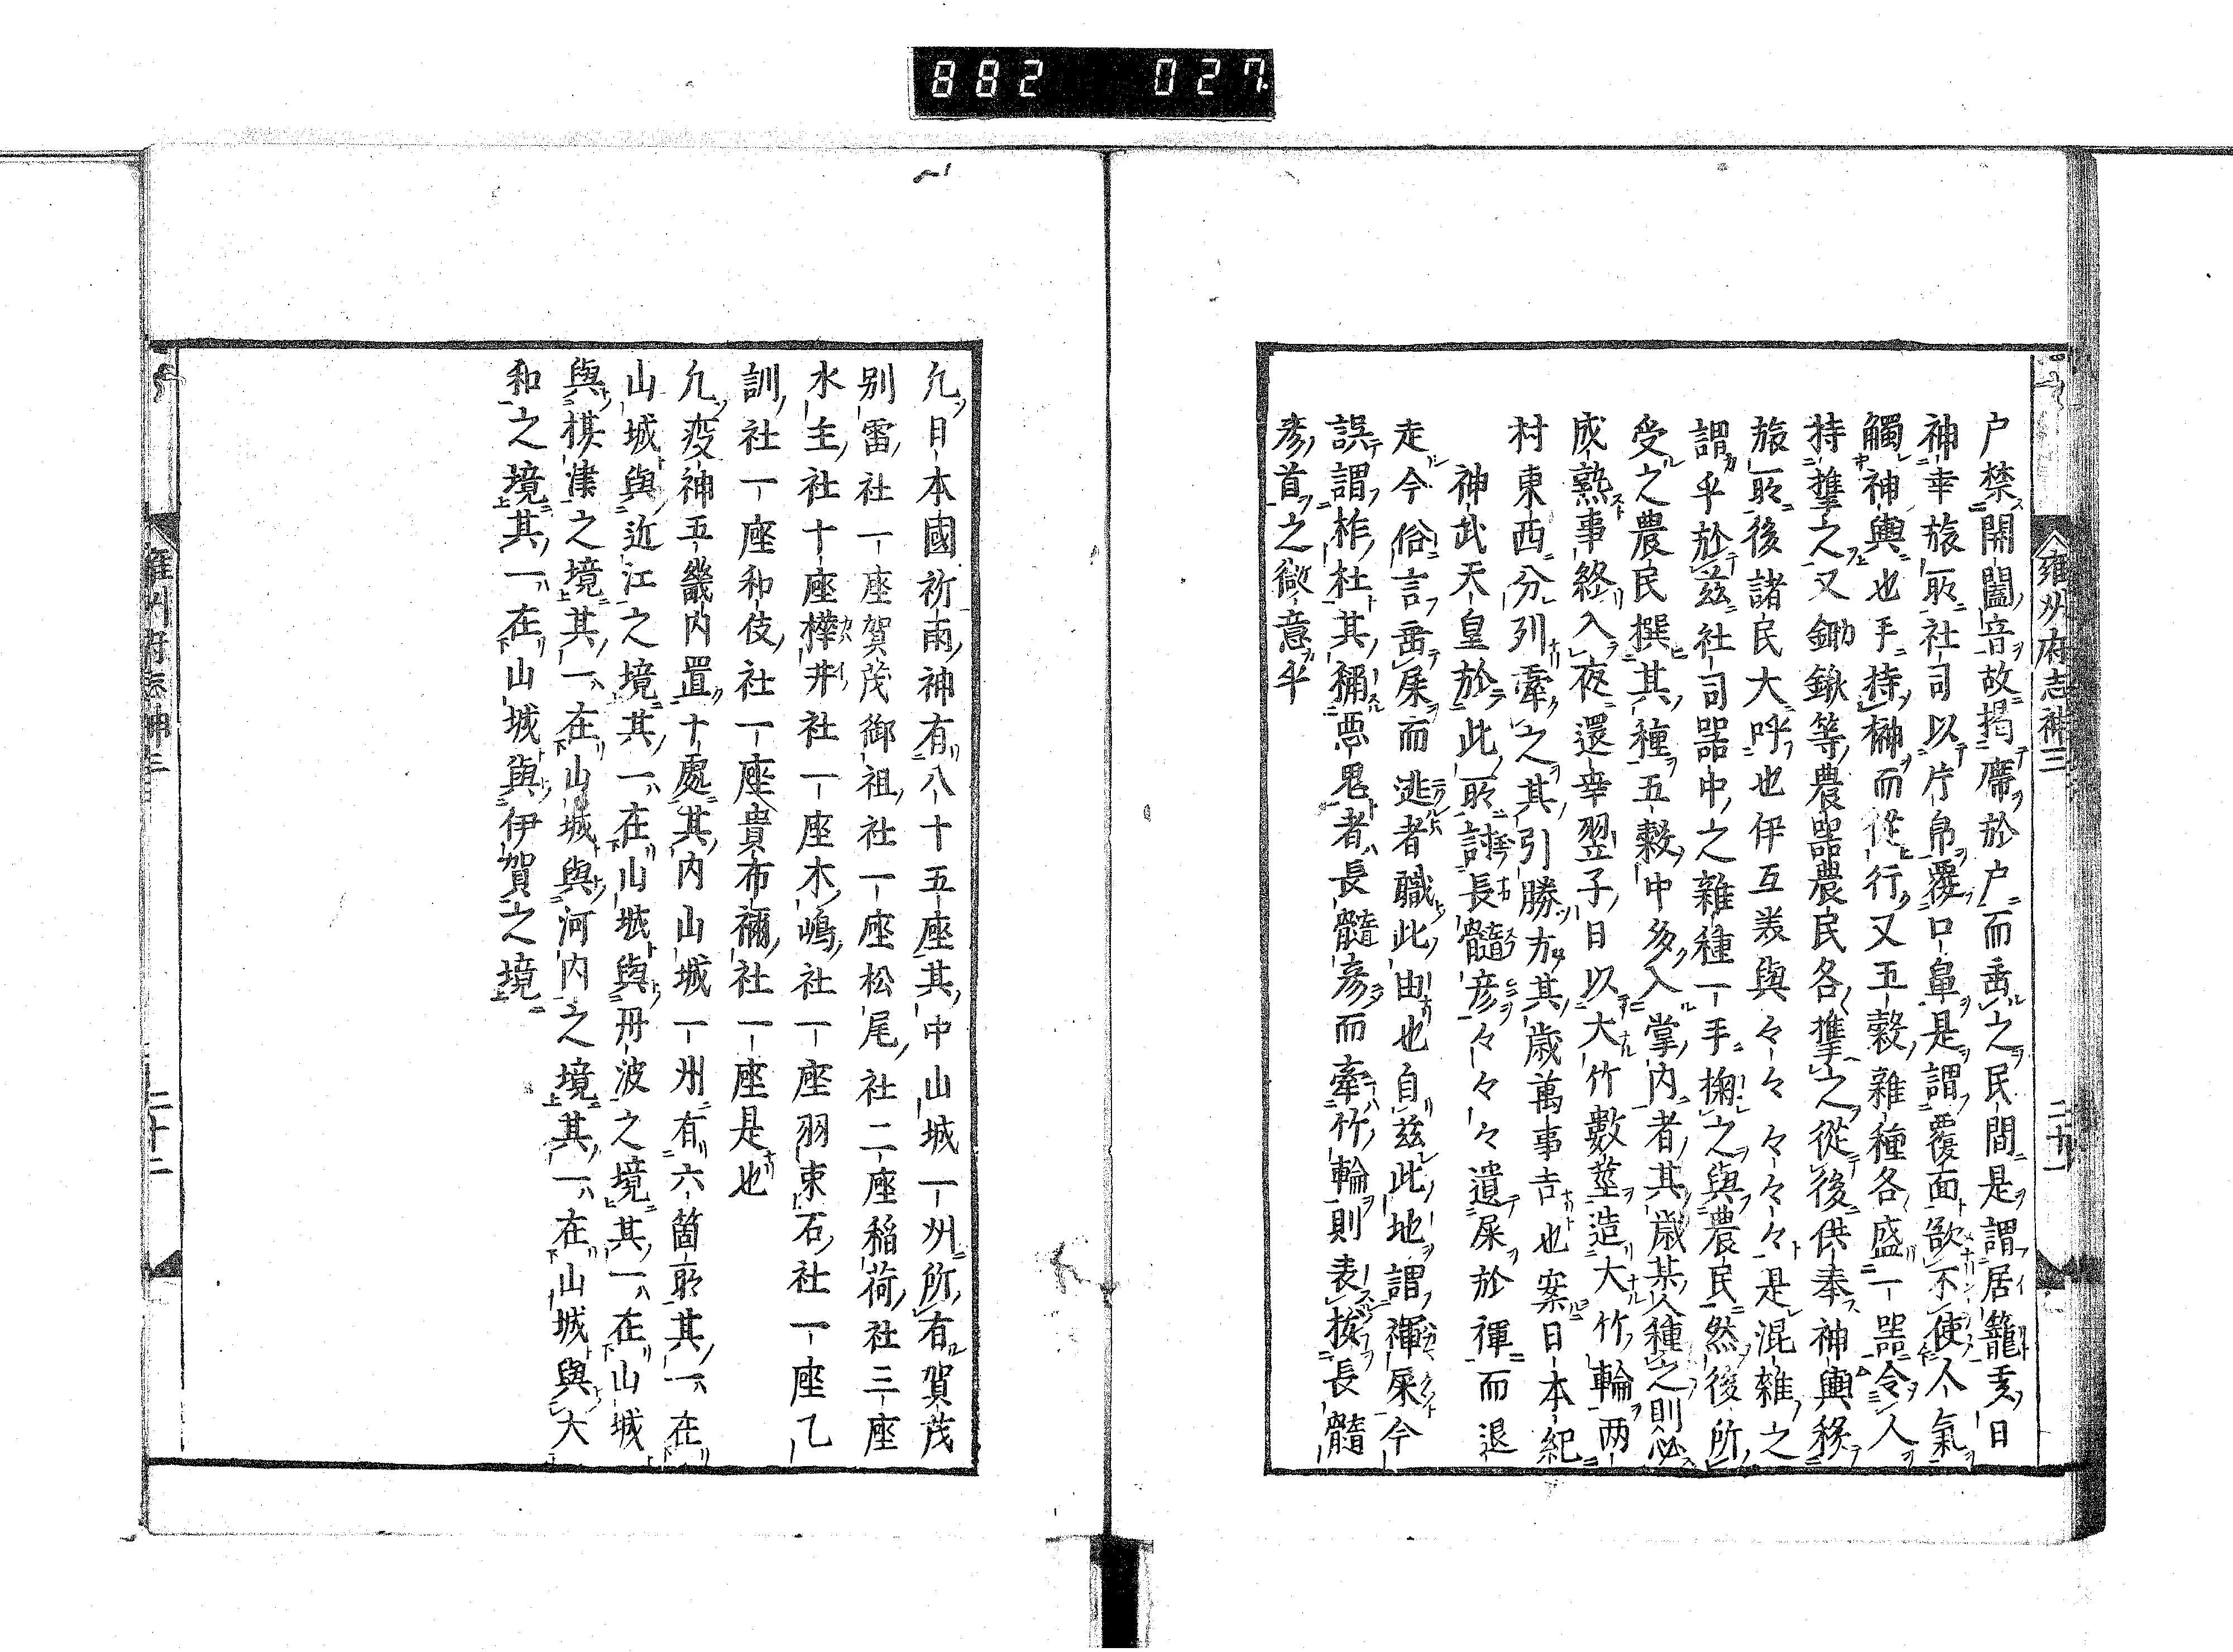 882 027
雍州府志神三 二十一
户禁開闔音故掲廗於户而垂之民間是謂居籠亥日
神幸旅所社司以片帛覆口鼻是謂覆面欲不使人氣
觸神輿也手持榊而從行又五穀雜種各盛一器令人
持携之又鋤鍬等農器農民各携之從後供奉神輿移
旅所後諸民大呼也伊互羙與々々々々々是混雜之
謂乎於兹社司器中之雜種一手掬之與農民然後所
受之農民撰其種五穀中多入掌内者其歳某人種之則必
成熟事終入夜還幸翌子日以大竹數莖造大竹輪両
村東西分列牽之其引勝方其歳萬事吉也案日本紀
神武天皇於此所討長髓彦々々々遺屎於褌而退
走今俗言垂屎而逃者職此由也自兹此地謂褌屎今
誤謂柞杜其稱惡鬼者長髓彦而牽竹輪則表挍長髓
彦首之微意乎
凢日本國祈雨神有八十五座其中山城一州所有賀茂
别雷社一座賀茂御祖社一座松尾社二座稲荷社三座
水主社十座樺井社一座木嶋社一座羽束石社一座乙
訓社一座和伎社一座貴布禰社一座是也
凢疫神五畿内置十處其内山城一州有六箇所其一在
山城與近江之境其一在山城與丹波之境其一在山城
與棋津之境其一在山城與河内之境其一在山城與大
和之境其一在山城與伊賀之境
雍州府志神三 二十二